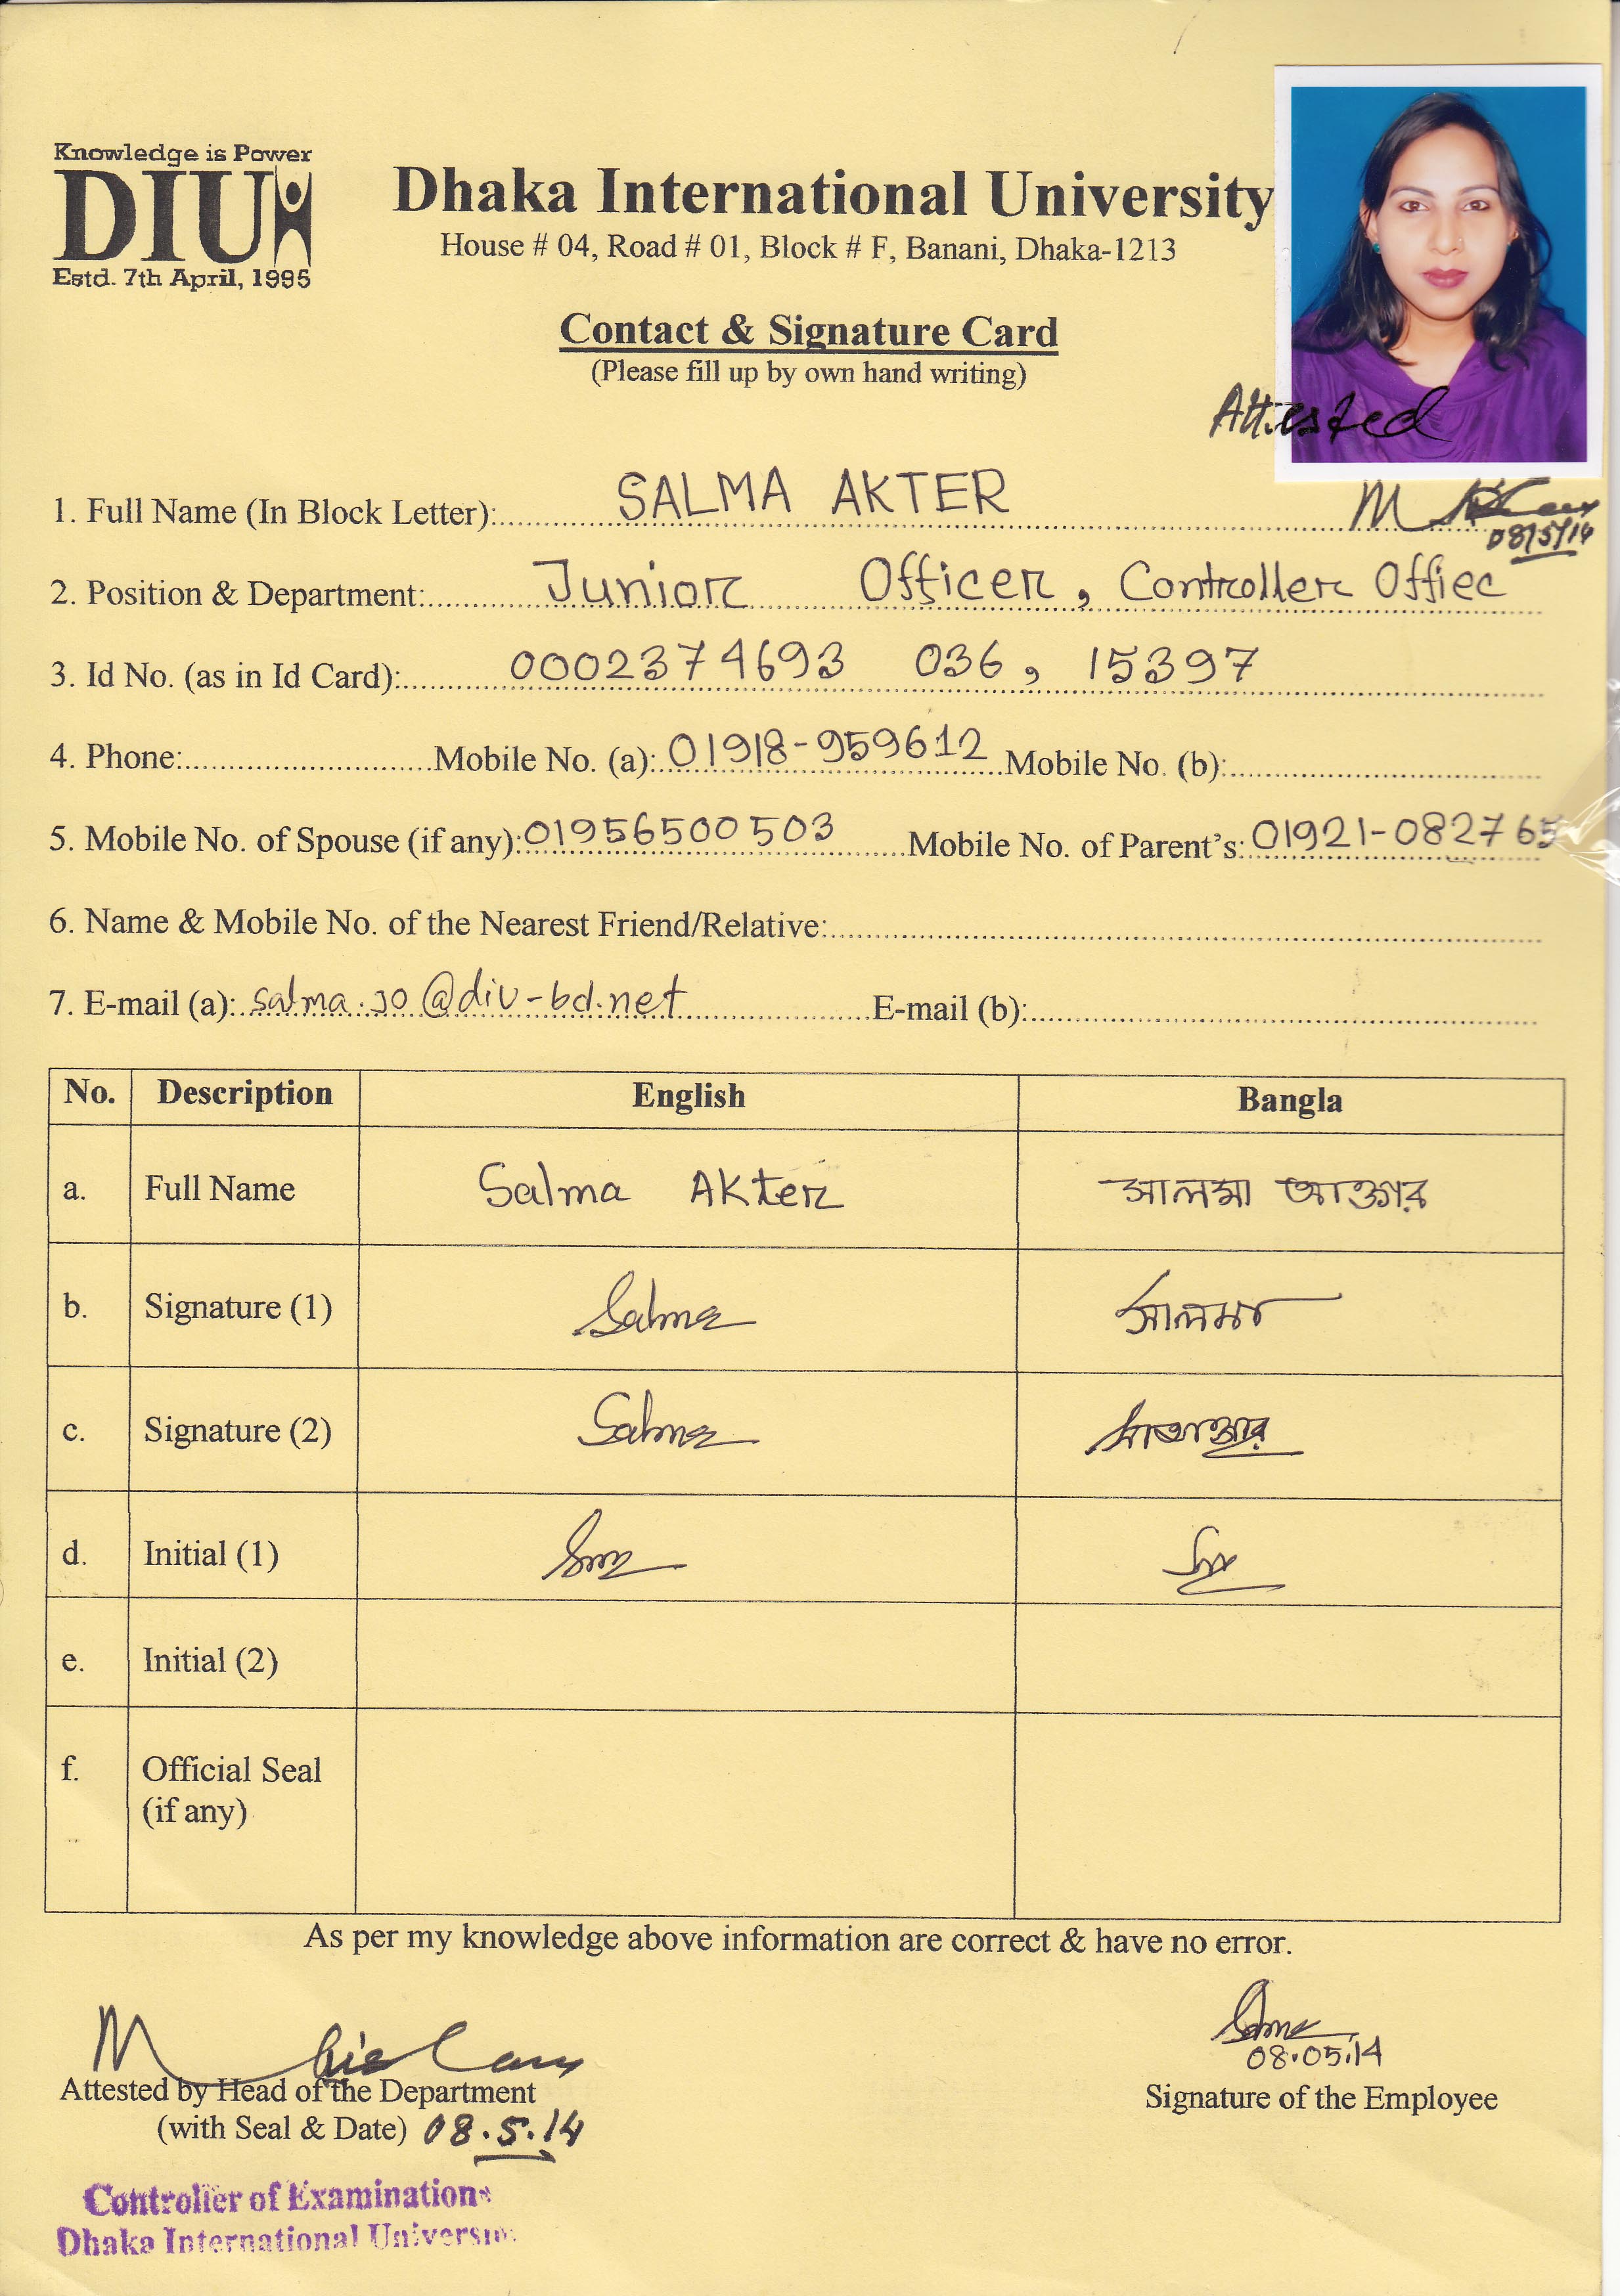 Knowledge is Power
DIU
Estd. 7th April, 1995
Dhaka International University
House # 04, Road # 01, Block # F, Banani, Dhaka-1213
Contact & Signature Card
(Please fill up by own hand writing)
Attested
08/5/14
1. Full Name (In Block Letter): SALMA AKTER
2. Position & Department: Junior Officer, Controller Offiec
3. Id No. (as in Id Card): 0002374693 036, 15397
4. Phone: Mobile No. (a): 01918-959612 Mobile No. (b):
5. Mobile No. of Spouse (if any): 01956500503 Mobile No. of Parent's: 01921-082765
6. Name & Mobile No. of the Nearest Friend/Relative:
7. E-mail (a): salma.jo@diu-bd.net E-mail (b):
No. Description English Bangla
a. Full Name Salma Akter সালমা আক্তার
b. Signature (1) Salma সালমা
c. Signature (2) Salma
d. Initial (1)
e. Initial (2)
f. Official Seal
(if any)
As per my knowledge above information are correct & have no error.
08.05.14
Attested by Head of the Department
(with Seal & Date) 08.5.14
Signature of the Employee
Controller of Examinations
Dhaka International University